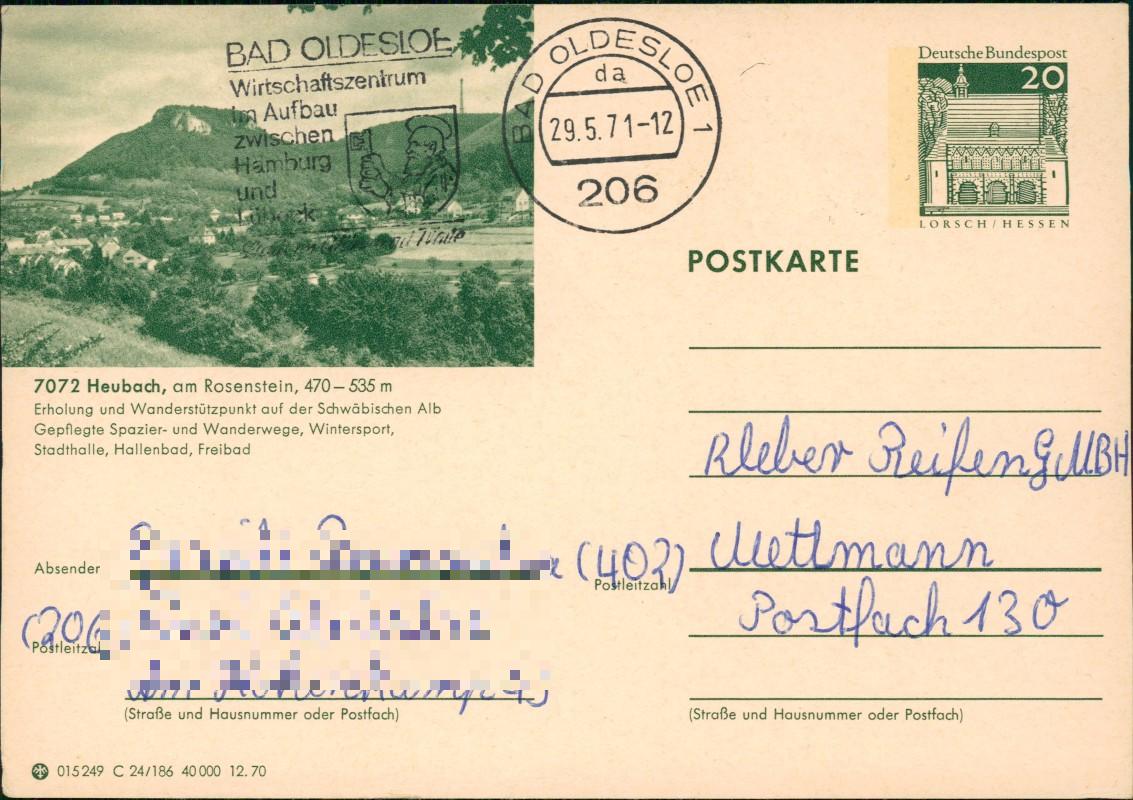 BAD OLDESLOE
Wirtschaftszentrum
im Aufbau
zwischen
Hamburg
und
Lübeck
BAD OLDESLOE 1
da
29.5.71-12
206
Deutsche Bundespost
20
LORSCH / HESSEN
POSTKARTE
7072 Heubach, am Rosenstein, 470 – 535 m
Erholung und Wanderstützpunkt auf der Schwäbischen Alb
Gepflegte Spazier- und Wanderwege, Wintersport,
Stadthalle, Hallenbad, Freibad
Kleber Reifen GMBH
Absender
(402) Mettmann
Postleitzahl
Postfach 130
(206
Postleitzal
(Straße und Hausnummer oder Postfach)
(Straße und Hausnummer oder Postfach)
015249 C 24/186 40000 12.70